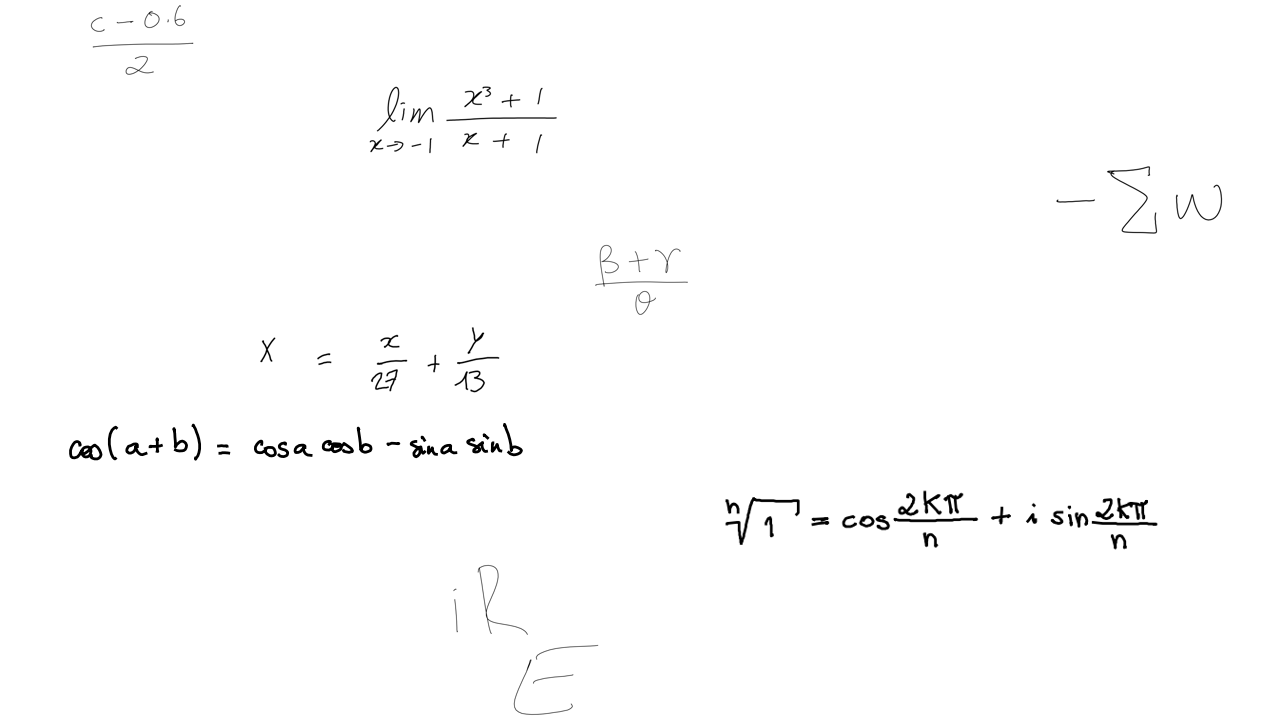 \frac{c - 0.6}{2}
\lim_{x \to -1} \frac{x^3 + 1}{x + 1}
- \sum w
\frac{\beta + \gamma}{\theta}
X = \frac{x}{27} + \frac{y}{13}
cos(a+b) = cosa cosb - sina sinb
\sqrt[n]{1} = cos \frac{2k\pi}{n} + i sin \frac{2k\pi}{n}
iR
E